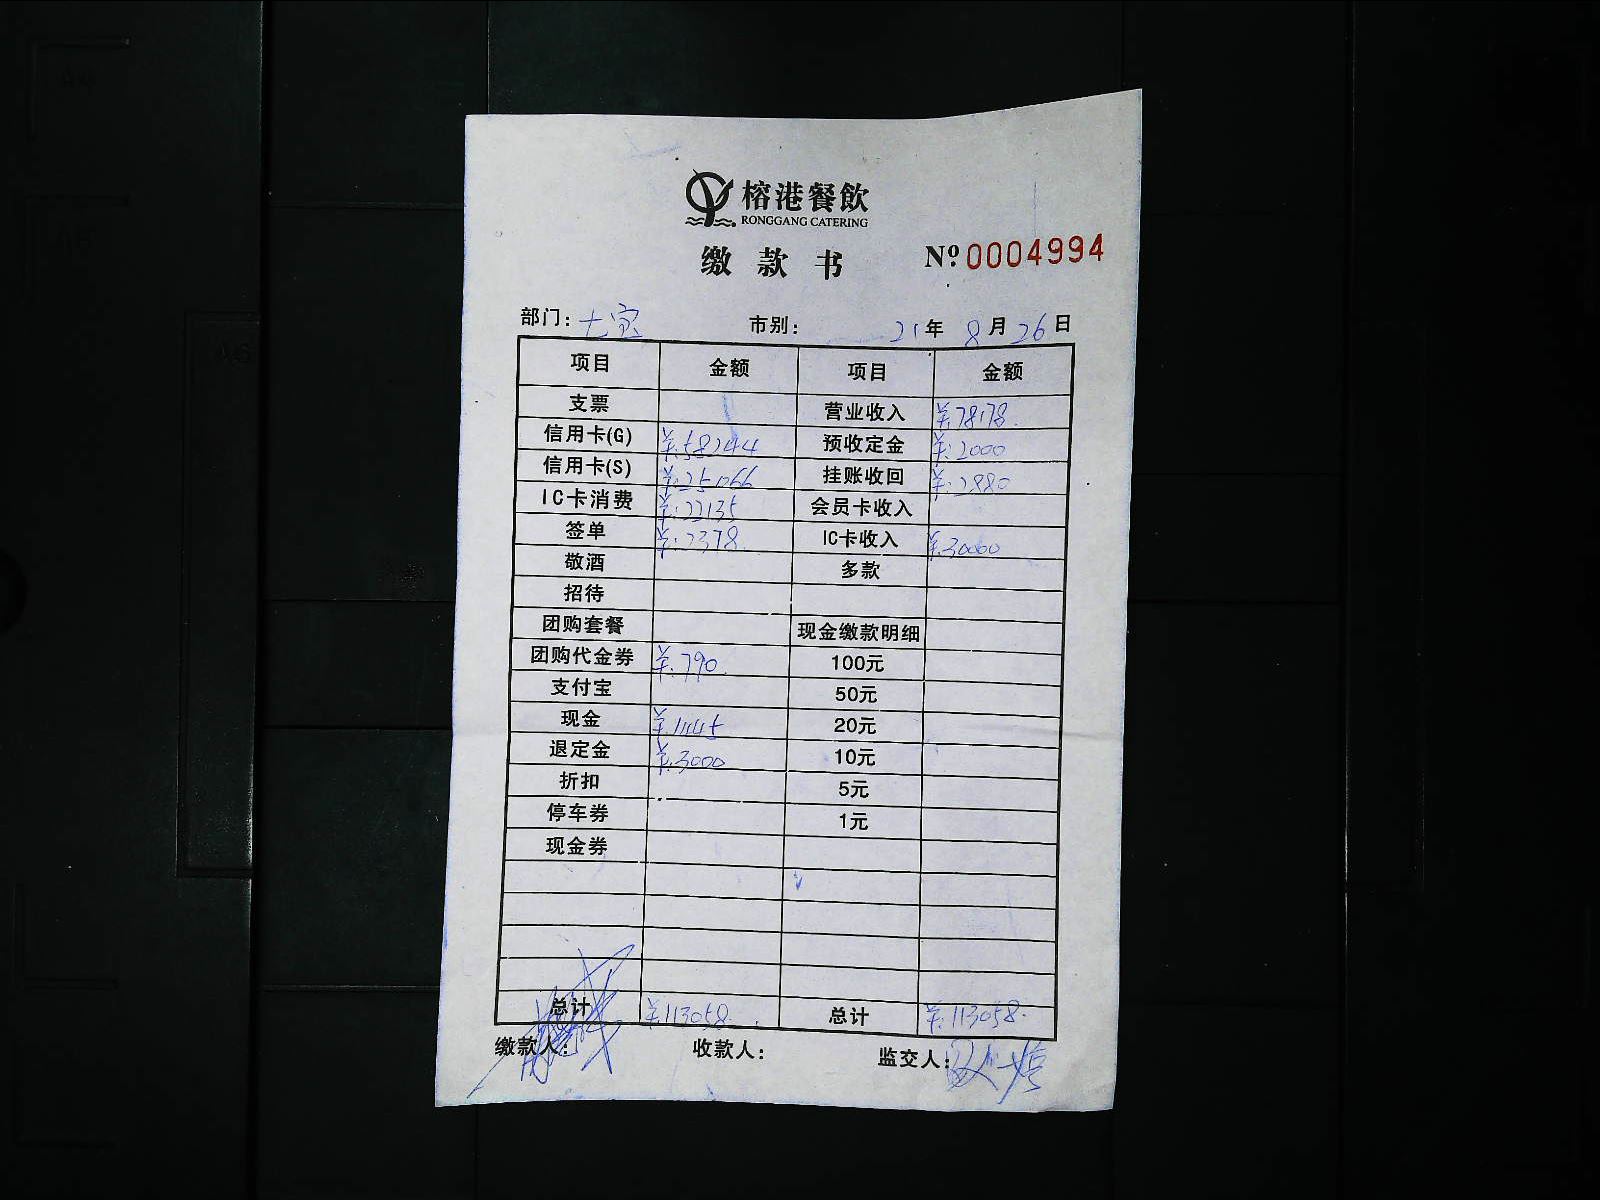 榕港餐飲
RONGGANG CATERING
缴款书 Nº 0004994
部门：七宝 市别： 21年 8月 26日
项目 金额 项目 金额
支票 营业收入 ¥:78178.
信用卡(G) ¥:58244 预收定金 ¥:2000
信用卡(S) ¥:25066 挂账收回 ¥:2880
IC卡消费 ¥:22135 会员卡收入
签单 ¥:2378. IC卡收入 ¥:30000
敬酒 多款
招待
团购套餐 现金缴款明细
团购代金券 ¥:790. 100元
支付宝 50元
现金 ¥:1445 20元
退定金 ¥:3000 10元
折扣 5元
停车券 1元
现金券
总计 ¥113058. 总计 ¥:113058.
缴款人： 收款人： 监交人：